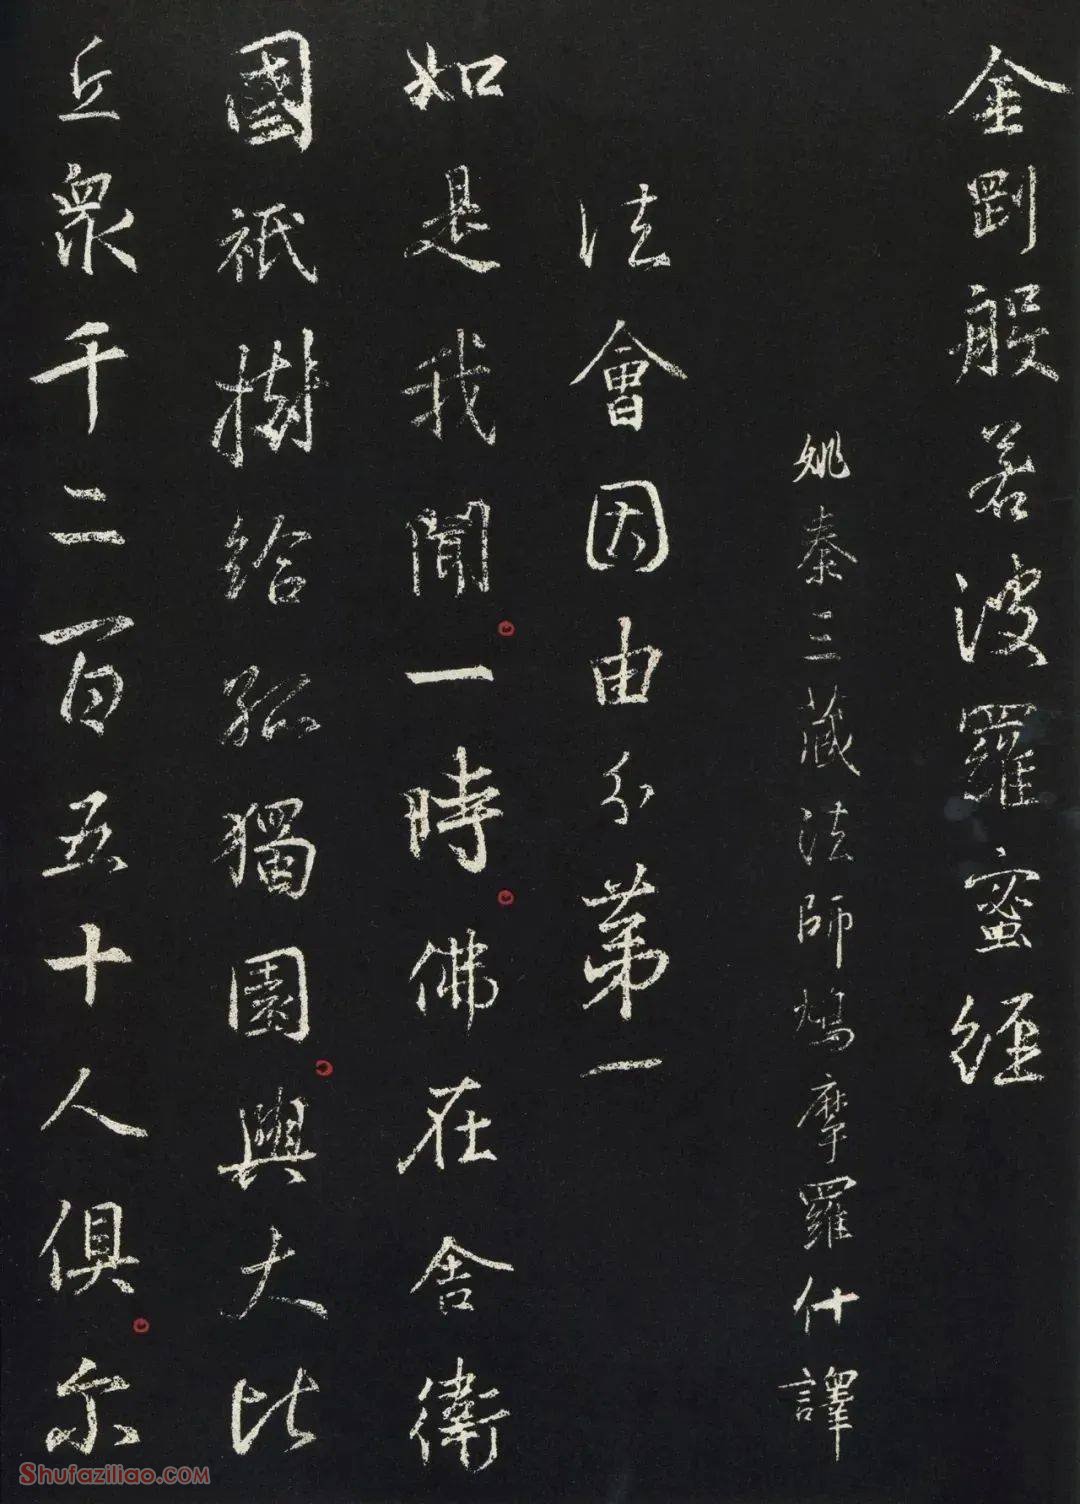 金剛般若波羅蜜經
姚秦三藏法師鳩摩羅什譯
法會因由分第一
如是我聞一時佛在舍衛
國祇樹給孤獨園與大比
丘眾千二百五十人俱尔
Shufaziliao.COM